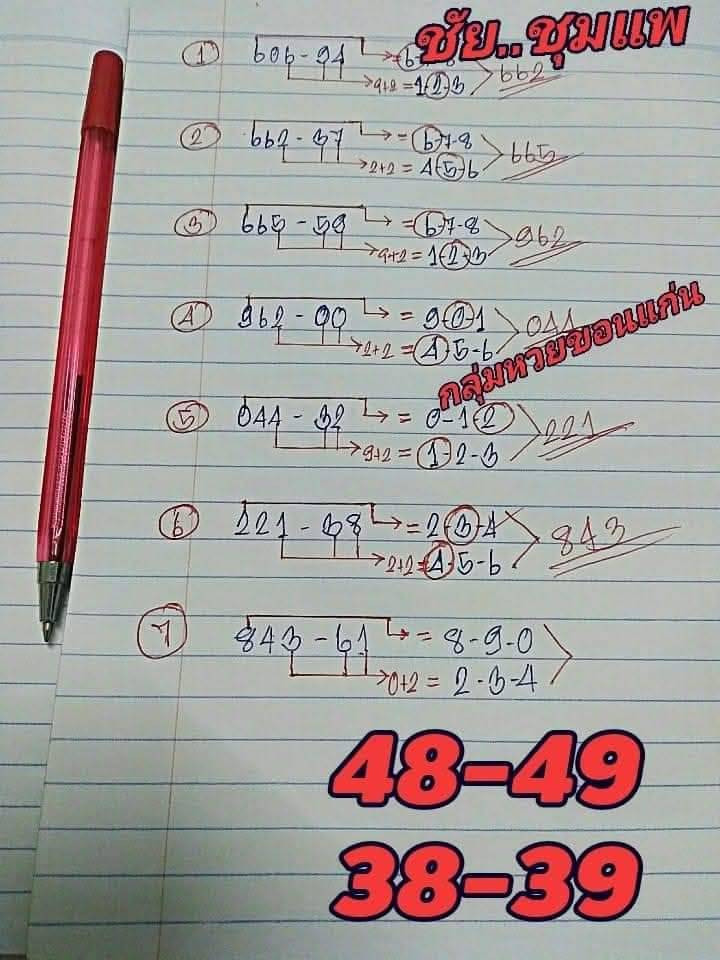 ชัย..ชุมแพ
1 606-94 =
9+2 = 1-2-3 662
2 662-37 = 6-7-8
2+2 = 4-5-6 665
3 665-59 = 6-7-8
9+2 = 1-2-3 962
4 962-00 = 9-0-1
2+2 = 4-5-6 044
กลุ่มหวยขอนแก่น
5 044-32 = 0-1-2
9+2 = 1-2-3 221
6 221-38 = 2-3-4
2+2 = 4-5-6 843
7 843-61 = 8-9-0
0+2 = 2-3-4
48-49
38-39